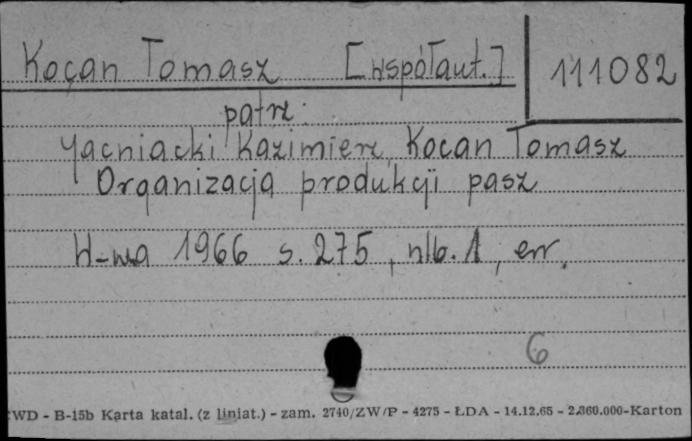 Kocan Tomasz [współaut.] 111082
patrz:
Gacniacki Kazimierz, Kocan Tomasz
Organizacja produkcji pasz
W-wa 1966 s. 275, nlb. 1, err.
6
WD - B-15b Karta katal. (z liniat.) - zam. 2740/ZW/P - 4275 - ŁDA - 14.12.65 - 2.360.000-Karton